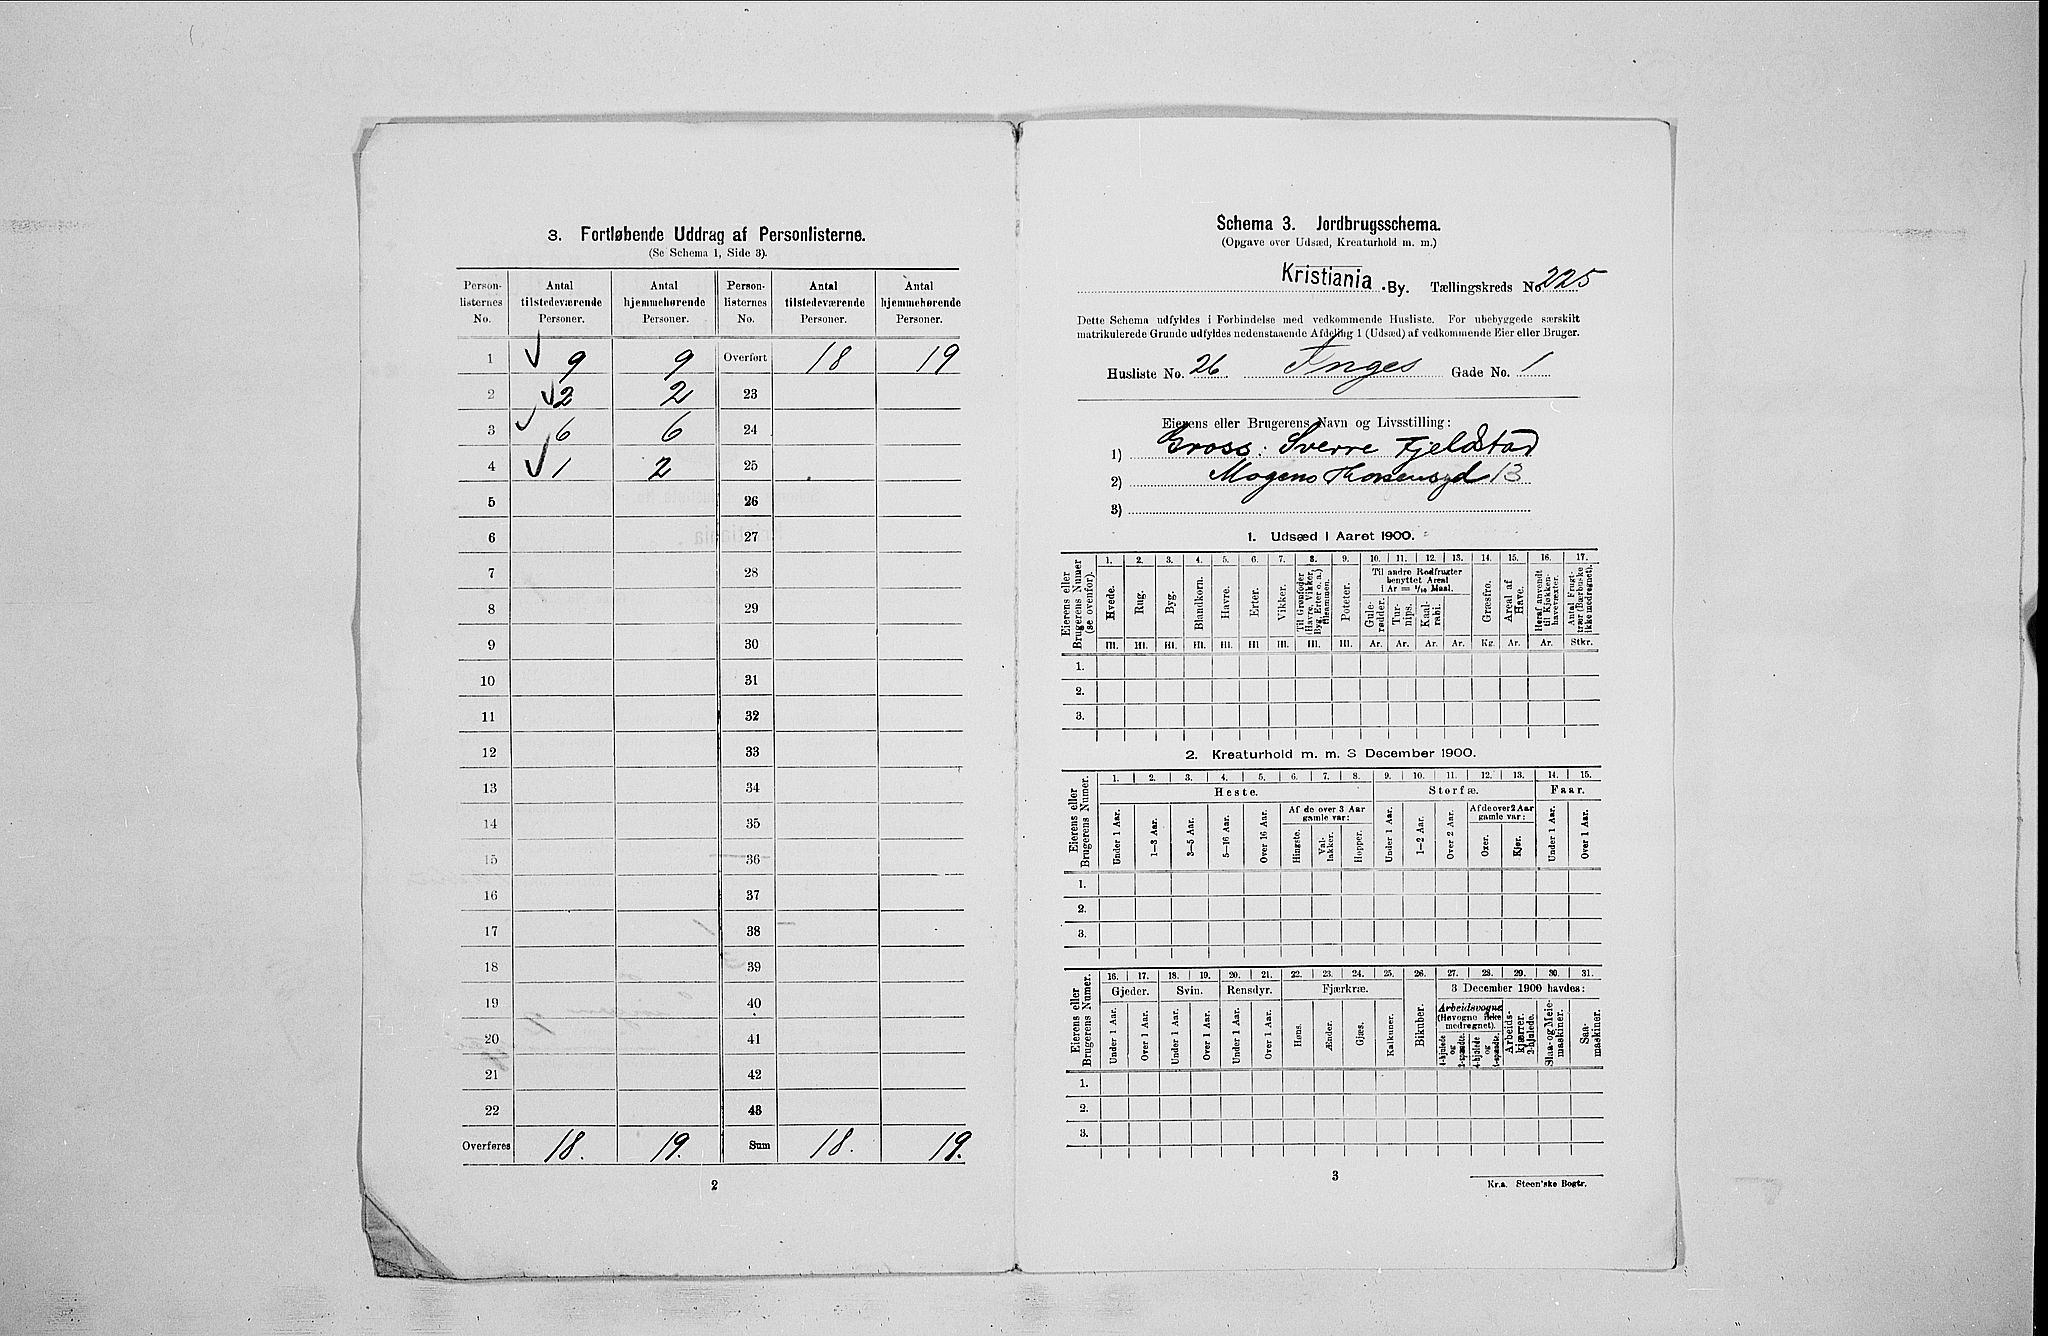 3. Fortløbende Uddrag af Personlisterne.
(Se Schema 1, Side 3).
Person-listernes No. | Antal tilstedeværende Personer. | Antal hjemmehørende Personer. | Person-listernes No. | Antal tilstedeværende Personer. | Antal hjemmehørende Personer.
1 | 9 | 9 | Overført | 18 | 19
2 | 2 | 2 | 23
3 | 6 | 6 | 24
4 | 1 | 2 | 25
5 | 26
6 | 27
7 | 28
8 | 29
9 | 30
10 | 31
11 | 32
12 | 33
13 | 34
14 | 35
15 | 36
16 | 37
17 | 38
18 | 39
19 | 40
20 | 41
21 | 42
22 | 43
Overføres | 18. | 19. | Sum | 18. | 19.
2
Schema 3. Jordbrugsschema.
(Opgave over Udsæd, Kreaturhold m. m.)
Kristiania By. Tællingskreds No. 225
Dette Schema udfyldes i Forbindelse med vedkommende Husliste. For ubebyggede særskilt
matrikulerede Grunde udfyldes nedenstaaende Afdeling 1 (Udsæd) af vedkommende Eier eller Bruger.
Husliste No. 26. Inges Gade No. 1
Eierens eller Brugerens Navn og Livsstilling:
1) Gross. Sverre Fjeldstad
2) Mogens 13
3)
1. Udsæd i Aaret 1900.
Eierens eller Brugerens Numer (se ovenfor).
1. 2. 3. 4. 5. 6. 7. 8. 9. 10. 11. 12. 13. 14. 15. 16. 17.
Til andre Rodfrugter benyttet Areal i Ar = 1/10 Maal.
Hvede. Rug. Byg. Blandkorn. Havre. Erter. Vikker. Til Grønfoder (Havre, Vikker, Byg, Erter o. a.) tilsammen. Poteter. Gule-rødder. Tur-nips. Kaal-rabi. Græsfrø. Areal af Have. Heraf anvendt til Kjøkken-havevæxter. Antal Frugt-trær (Bærbuske ikke medregnet).
Hl. Hl. Hl. Hl. Hl. Hl. Hl. Hl. Hl. Ar. Ar. Ar. Ar. Kg. Ar. Ar. Stkr.
1.
2.
3.
2. Kreaturhold m. m. 3 December 1900.
Eierens eller Brugerens Numer.
1. 2. 3. 4. 5. 6. 7. 8. 9. 10. 11. 12. 13. 14. 15.
Heste. Storfæ. Faar.
Af de over 3 Aar gamle var: Af de over 2 Aar gamle var:
Under 1 Aar. 1–3 Aar. 3–5 Aar. 5–16 Aar. Over 16 Aar. Hingste. Val-lakker. Hopper. Under 1 Aar. 1–2 Aar. Over 2 Aar. Oxer. Kjør. Under 1 Aar. Over 1 Aar.
1.
2.
3.
Eierens eller Brugerens Numer.
16. 17. 18. 19. 20. 21. 22. 23. 24. 25. 26. 27. 28. 29. 30. 31.
Gjeder. Svin. Rensdyr. Fjærkræ. Bikuber. 3 December 1900 havdes:
Arbeidsvogne (Høvogne ikke medregnet).
Under 1 Aar. Over 1 Aar. Under 1 Aar. Over 1 Aar. Under 1 Aar. Over 1 Aar. Høns. Ænder. Gjæs. Kalkuner. 4-hjulede og 2-spændte. 4-hjulede og 1-spændte. Arbeids-kjærrer, 2-hjulede. Slaa- og Meie-maskiner. Saa-maskiner.
1.
2.
3.
3
Kr.a. Steen'ske Bogtr.